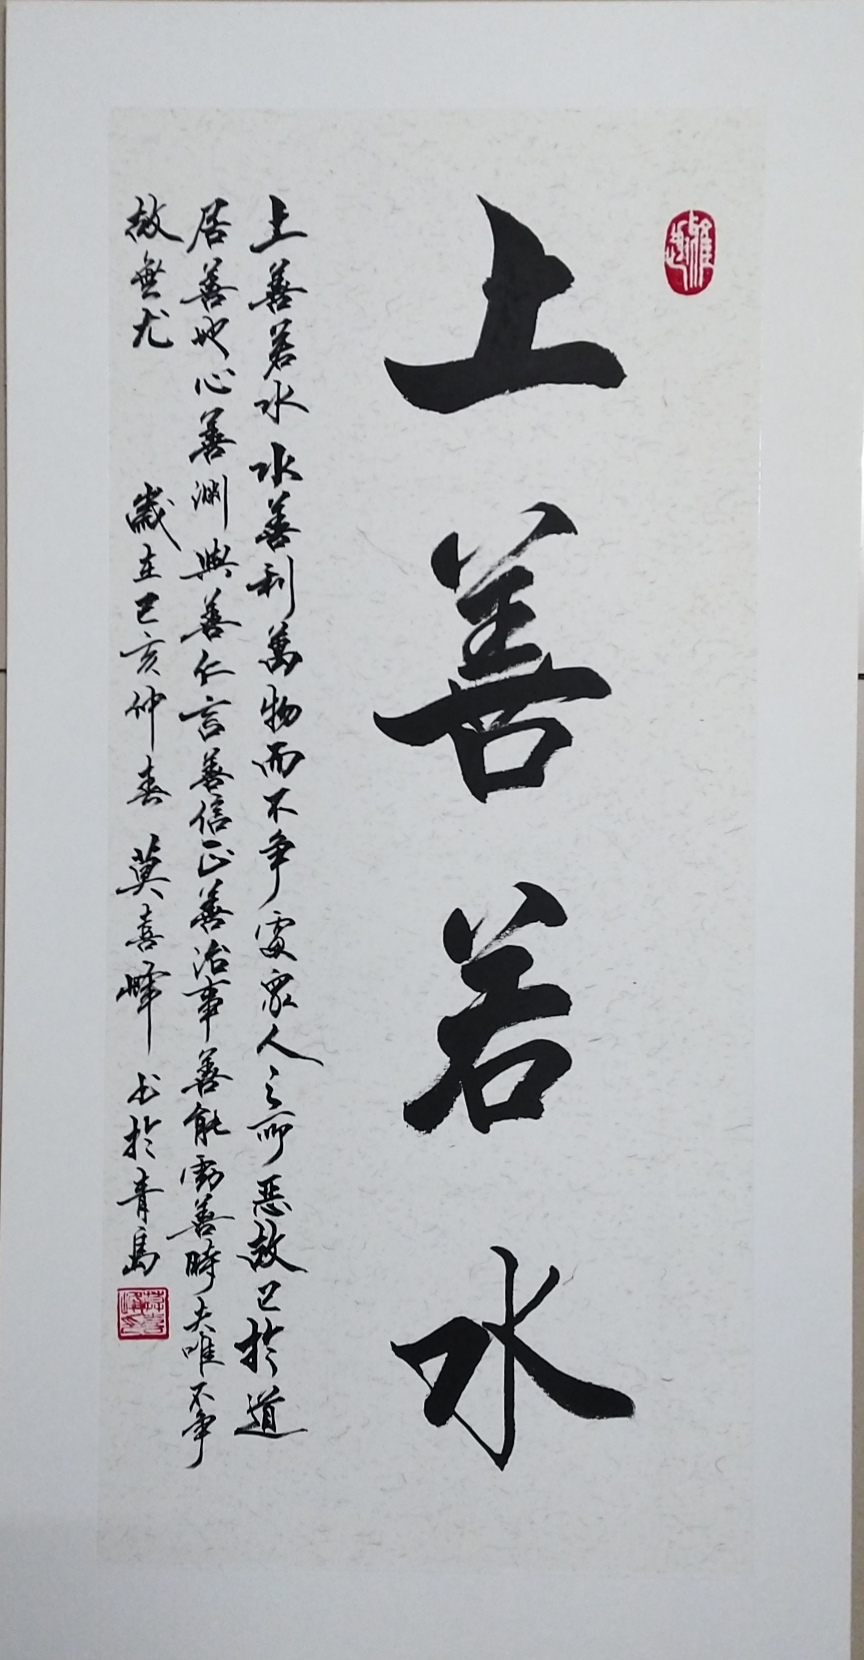 上善若水
上善若水水善利萬物而不争處衆人之所恶故已於道
居善地心善渊與善仁言善信正善治事善能動善時夫唯不争
故無尤 歲在己亥仲春 莫喜峰 书於青島